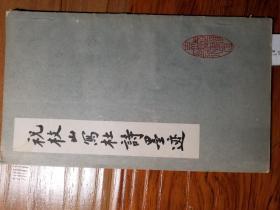 祝枝山寫杜詩墨迹